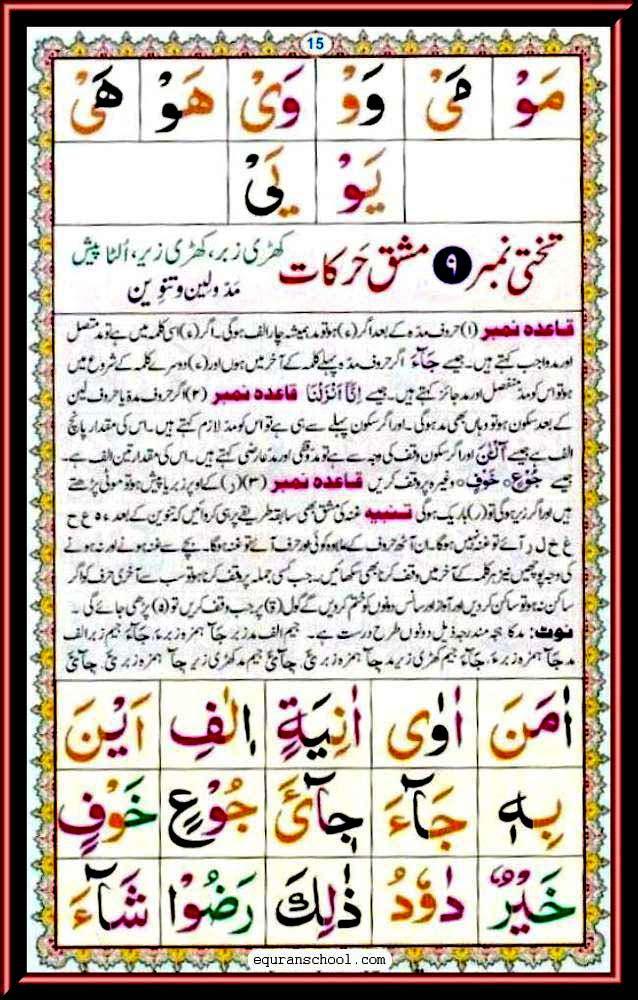 15
مَوْ مَیْ وَوْ وَیْ هَوْ هَیْ
یَوْ یَیْ
تختی نمبر ۹ مشق حَرکات کھڑی زبر، کھڑی زیر، اُلٹا پیش
مَدّ و لین و تنوین
قاعدہ نمبر (۱) حروف مدّہ کے بعد اگر (ء) ہو تو مد ہمیشہ چار الف ہوگی۔ اگر (ء) اسی کلمہ میں ہے تو مد متصل
اور مد واجب کہتے ہیں۔ جیسے جَآءَ اگر حروف مدّہ پہلے کلمہ کے آخر میں ہوں اور (ء) دوسرے کلمہ کے شروع میں
ہو تو اس کو مد منفصل اور مد جائز کہتے ہیں۔ جیسے اِنَّآ اَنْزَلْنَا قاعدہ نمبر (۲) اگر حروف مدہ یا حروف لین
کے بعد سکون ہو تو وہاں بھی مد ہوگی۔ اور اگر سکون پہلے سے ہی ہے تو اس کو مد لازم کہتے ہیں۔ اس کی مقدار پانچ
الف ہے جیسے آلْـٰٔنَ اور اگر سکون وقف کی وجہ سے ہے تو مد وقفی اور مد عارضی کہتے ہیں۔ اس کی مقدار تین الف ہے۔
جیسے جُوْعٍ ○ خَوْفٍ ○ وغیرہ پر وقف کریں قاعدہ نمبر (۳) (ر) کے اوپر زبر یا پیش ہو تو موٹی پڑھتے
ہیں اور اگر زیر ہو گی تو (ر) باریک ہوگی تنبیہ غنہ کی مشق بھی سابقہ طریقے پر ہی کروائیں کہ تنوین کے بعد ء ہ ع ح
غ خ ل ر آئے تو غنہ نہیں ہوگا۔ ان آٹھ حروف کے علاوہ کوئی اور حرف آئے تو غنہ ہوگا۔ بچے سے غنہ ہونے اور نہ ہونے
کی وجہ پوچھیں نیز ہر کلمہ کے آخر میں وقف کرنا بھی سکھائیں۔ جب کسی جملہ پر وقف کرنا ہو تو سب سے آخری حرف کو اگر
ساکن نہ ہو تو ساکن کر دیں اور آواز اور سانس دونوں کو ختم کر دیں گے گول (ة) پر جب وقف کریں تو (ہ) پڑھی جائے گی۔
نوٹ: مد کا ہجہ مندرجہ ذیل دونوں طرح درست ہے۔ جیم الف مد زبر جَآ ہمزہ زبر ءَ، جَآءَ جیم زبر الف
مد جَآ ہمزہ زبر ءَ، جَآءَ جیم کھڑی زیر مد
اٰمَنَ اٰوٰی اٰنِیَةٍ اٖلٰفِ اَیْنَ
بِهٖ جَآءَ جِآیْٔ جُوْعٍ خَوْفٍ
خَیْرٌ دَاوٗدُ ذٰلِكَ رَضُوْا شَآءَ
equranschool.com